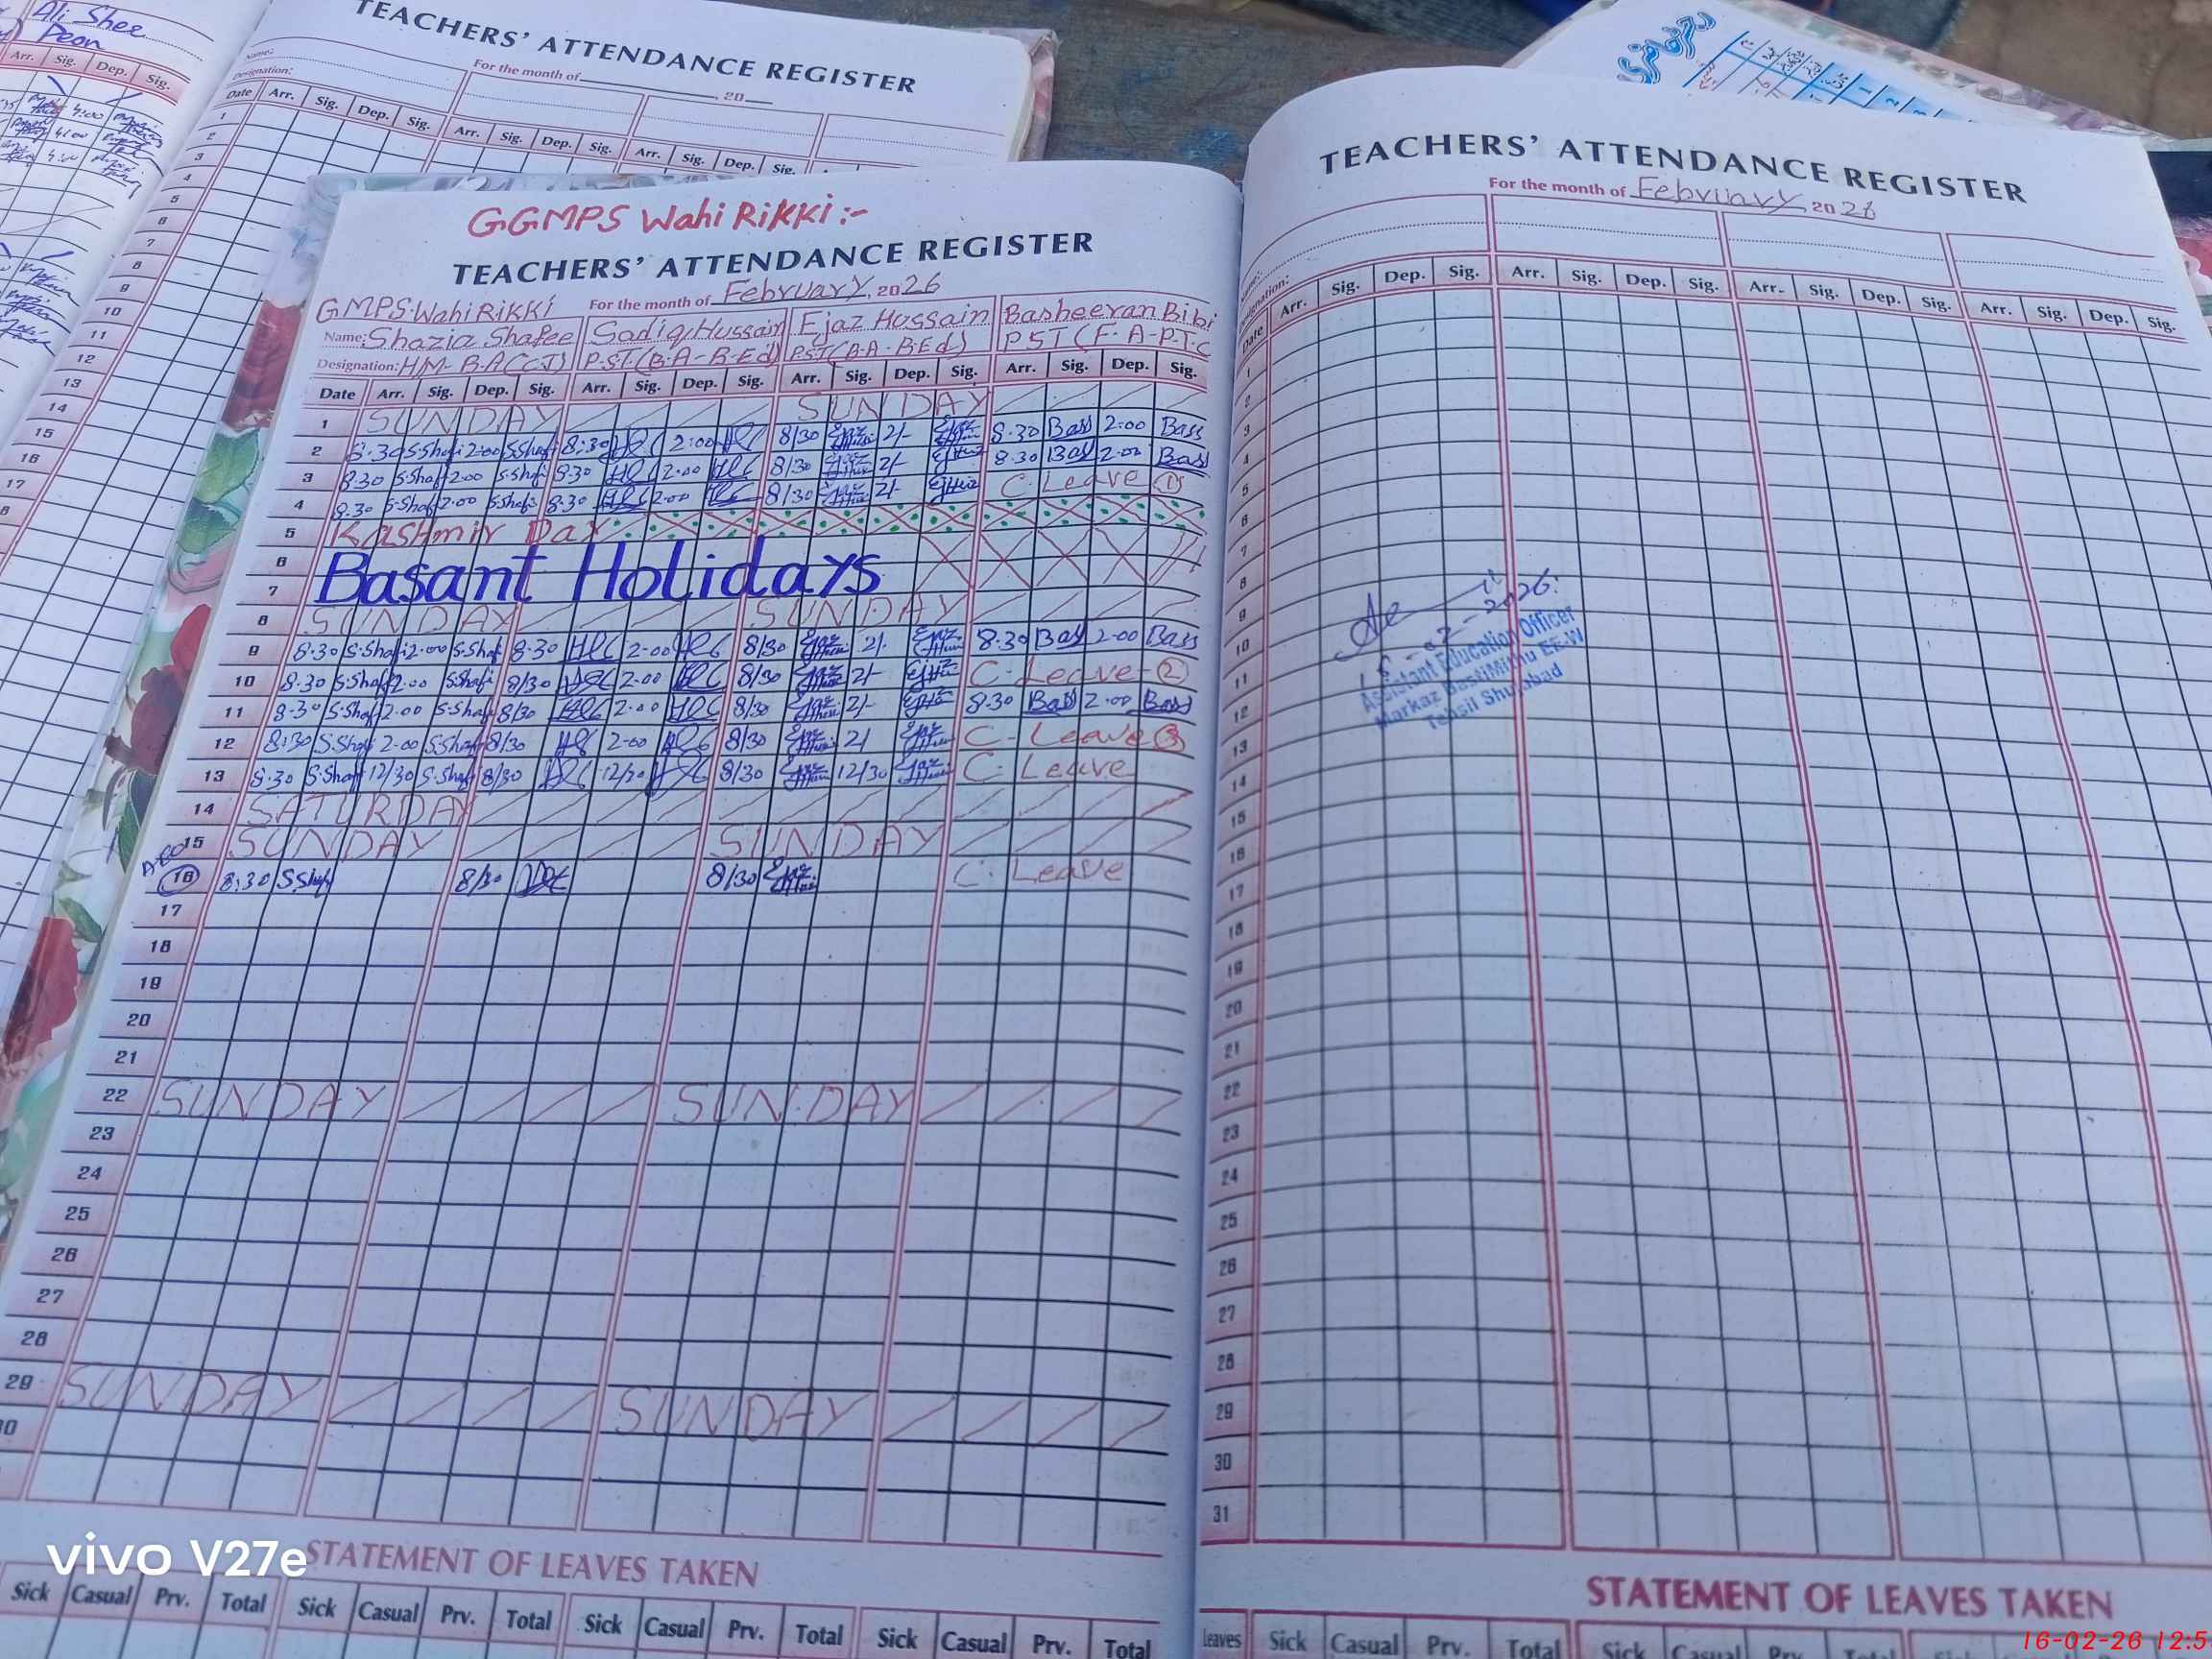 Ali Shee
Peon
Arr. Sig. Dep. Sig.
TEACHERS' ATTENDANCE REGISTER
Name:
For the month of 20
Designation:
Date Arr. Sig. Dep. Sig. Arr. Sig. Dep. Sig. Arr. Sig. Dep. Sig.
1
2
3
4
5
6
7
8
9
10
11
12
13
14
15
16
17
GGMPS Wahi Rikki:-
TEACHERS' ATTENDANCE REGISTER
GMPS: Wahi Rikki For the month of February, 2026
Name: Shazia Shafee Sadiq Hussain Ejaz Hussain Basheeran Bibi
Designation: HM- B.A (C.T) P.ST (B.A - B.Ed) PST (B.A - B.Ed) PST (F.A - P.T.C
Date Arr. Sig. Dep. Sig. Arr. Sig. Dep. Sig. Arr. Sig. Dep. Sig. Arr. Sig. Dep. Sig.
1 SUNDAY SUNDAY
2 8:30 S.Shafi 2:00 S.Shafi 8:30 2:00 8/30 2/- 8:30 Bass 2:00 Bass
3 8:30 S.Shafi 2:00 S.Shafi 8:30 2:00 8/30 2/- 8:30 Bass 2:00 Bass
4 8:30 S.Shafi 2:00 S.Shafi 8:30 2:00 8/30 2/- C. Leave 1
5 Kashmir Day:
6
7 Basant Holidays
8 SUNDAY SUNDAY
9 8:30 S.Shafi 2:00 S.Shafi 8:30 2:00 8/30 2/- 8:30 Bass 2:00 Bass
10 8:30 S.Shafi 2:00 S.Shafi 8/30 2:00 8/30 2/- C. Leave 2
11 8:30 S.Shafi 2:00 S.Shafi 8/30 2:00 8/30 2/- 8:30 Bass 2:00 Bass
12 8:30 S.Shafi 2:00 S.Shafi 8/30 2:00 8/30 2/ C. Leave 3
13 8:30 S.Shafi 12/30 S.Shafi 8/30 12/30 8/30 12/30 C. Leave
14 SATURDAY
15 SUNDAY SUNDAY
16 8:30 S.Shafi 8/30 8/30 C. Leave
17
18
19
20
21
22 SUNDAY SUNDAY
23
24
25
26
27
28
29 SUNDAY SUNDAY
STATEMENT OF LEAVES TAKEN
Sick Casual Prv. Total Sick Casual Prv. Total Sick Casual Prv. Total Sick Casual Prv. Total
TEACHERS' ATTENDANCE REGISTER
For the month of February, 2026
Name:
Designation:
Date Arr. Sig. Dep. Sig. Arr. Sig. Dep. Sig. Arr. Sig. Dep. Sig. Arr. Sig. Dep. Sig.
1
2
3
4
5
6
7
8
9
10
11
12
13
14
15
16
17
18
19
20
21
22
23
24
25
26
27
28
29
30
31
Assistant Education Officer
Markaz BastiMithu EE-W
Tehsil Shujabad
STATEMENT OF LEAVES TAKEN
Leaves Sick Casual Prv. Total Sick Casual Prv. Total
vivo V27e
16-02-26 12:5